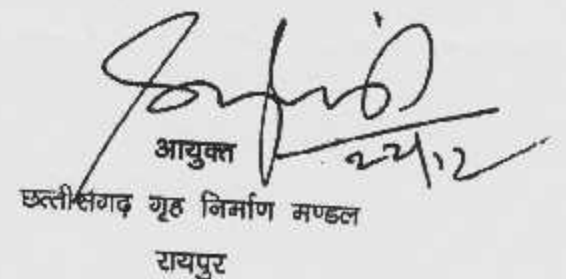 22/12
आयुक्त
छत्तीसगढ़ गृह निर्माण मण्डल
रायपुर